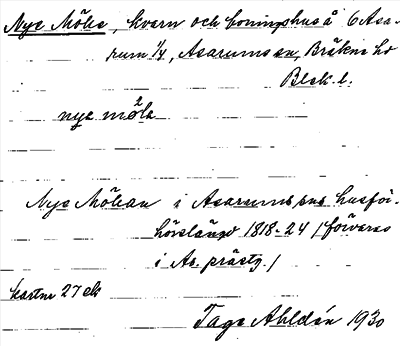 Nye Möla, kvarn och boningshus å 6 Asa-
rum 1/4, Asarums sn, Bräkne hd
Blek. l.
nyɛ mø2la
Nye Mölan i Asarums sns husför-
hörslängd 1818-24 (förvaras
i As. prästg.)
kartan 27 ek
Tage Ahldén 1930